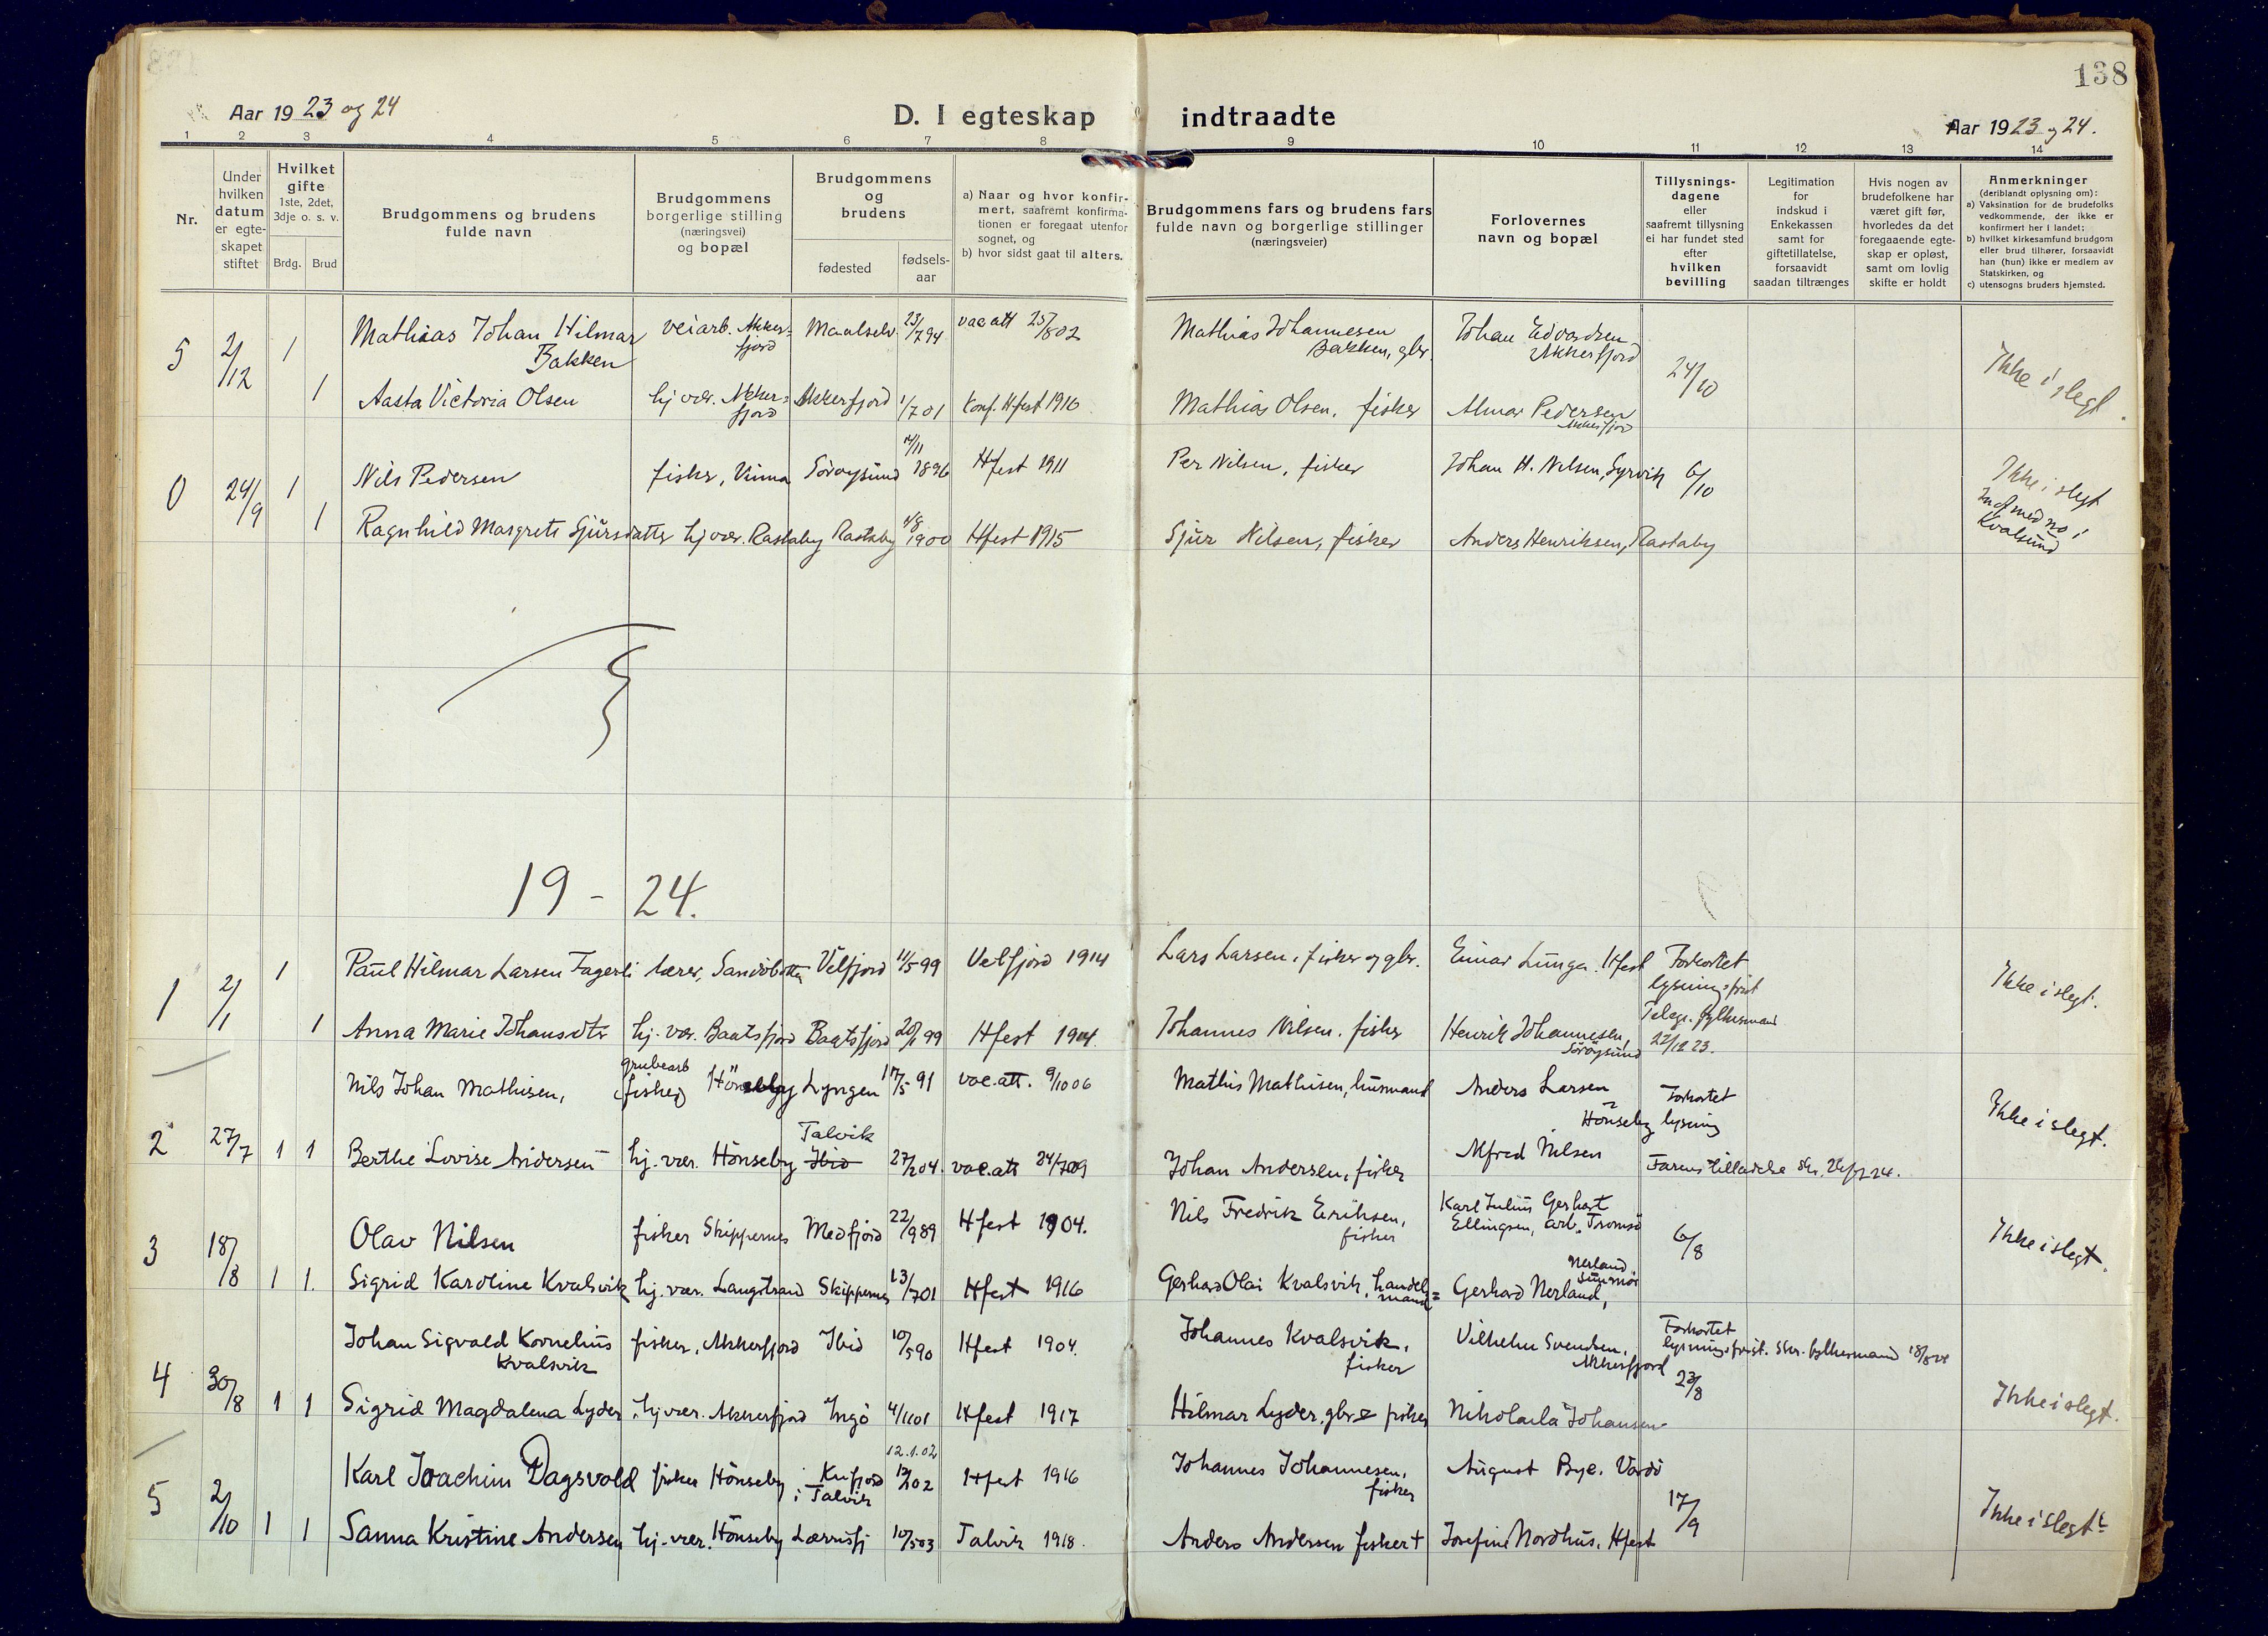 138
Aar 1923 og 24
D. I egteskap indtraadte
Aar 1923 og 24.
1 2 3 4 5 6 7 8 9 10 11 12 13 14
Nr.
Under hvilken datum er egteskapet stiftet
Hvilket gifte
1ste, 2det, 3dje o. s. v.
Brdg. Brud
Brudgommens og brudens fulde navn
Brudgommens borgerlige stilling (næringsvei) og bopæl
Brudgommens og brudens
fødested
fødsels-aar
a) Naar og hvor konfirmert, saafremt konfirmationen er foregaat utenfor sognet, og
b) hvor sidst gaat til alters.
Brudgommens fars og brudens fars fulde navn og borgerlige stillinger (næringsveier)
Forlovernes navn og bopæl
Tillysningsdagene eller saafremt tillysning ei har fundet sted efter hvilken bevilling
Legitimation for indskud i Enkekassen samt for giftetillatelse, forsaavidt saadan tiltrænges
Hvis nogen av brudefolkene har været gift før, hvorledes da det foregaaende egteskap er opløst, samt om lovlig skifte er holdt
Anmerkninger
(deriblandt oplysning om):
a) Vaksination for de brudefolks vedkommende, der ikke er konfirmert her i landet;
b) hvilket kirkesamfund brudgom eller brud tilhører, forsaavidt han (hun) ikke er medlem av Statskirken, og
c) utensogns bruders hjemsted.
5 2/12 1 Mathias Johan Hilmar Bakken veiarb. Akkerfjord Maalselv 23/794 vac att 25/802 Mathias Johannesen Bakken, gbr. Johan Edvardsen Akkerfjord 24/10 Ikke i slegt.
1 Aasta Victoria Olsen hj. vær. Akkerfjord Akkerfjord 1/701 Konf. Hfest 1916 Mathias Olsen, fisker Almar Pedersen Akkerfjord
0 24/9 1 Nils Pedersen fisker, Vinna Sörøysund 1896 Hfest 1911 Per Nilsen, fisker Johan H. Nilsen, Syrvik 6/10 Ikke i slegt
1 Ragnhild Margrete Sjursdatter hj vær. Rastaby Rastaby 1/8 1900 Hfest 1915 Sjur Nilsen, fisker Anders Henriksen, Rastaby Kvalsund
19 - 24.
1 2/1 1 Paul Hilmar Larsen Fagerli lærer, Velfjord 11/5 99 Velfjord 1914 Lars Larsen, fisker og gbr. Einar Lunga. Hfest Forkortet lysningsfrist Ikke i slegt.
1 Anna Marie Johansdtr hj. vær. Baatsfjord Baatsfjord 20/1 99 Hfest 1914. Johannes Nilsen. fisker Henrik Johannesen, Sörøysund Telegr. fylkesmand 22/12 23.
2 27/7 1 1 Nils Johan Mathisen, grubearb (fisker) Hönseby Lyngen 17/5 91 vac. att. 9/10 06 Mathis Mathisen, husmand Anders Larsen Hönseby Forkortet lysning Ikke i slegt.
Berthe Lovise Andersen hj. vær. Hönseby Talvik Ibid 27/204. vac. att 24/709 Johan Andersen, fisker Alfred Nilsen Farens tilladelse
3 18/8 1 1. Olav Nilsen fisker Skippernes Medfjord 22/989 Hfest 1904. Nils Fredrik Eriksen, fisker Karl Julius Gerhart Ellingsen, arb. Tromsö 6/8 Ikke i slegt.
Sigrid Karoline Kvalsvik hj. vær. Langstrand Skippernes 13/701 Hfest 1916 Gerhard Olai Kvalsvik, handelsmand Gerhard Nerland, Nerland Sunmör
4 30/8 1 1 Johan Sigvald Kornelius Kvalsvik fisker, Akkerfjord Ibid 10/590 Hfest 1904. Johannes Kvalsvik, fisker Vilhelm Svendsen, Akkerfjord Forkortet lysningsfrist. Skr. fylkesmand 18/8 24 23/8
Sigrid Magdalena Lyder hj. vær. Akkerfjord Ingö 4/1101 Hfest 1917 Hilmar Lyder, gbr & fisker Nikolaila Johansen Ikke i slegt.
5 2/10 1 1 Karl Joachim Dagsvold fisker Hönseby Kufjord i Talvik 12.1.02 12/202 Hfest 1916 Johannes Johannesen, fisker August Bye. Vardö 17/9 Ikke i slegt
Sanna Kristine Andersen hj. vær. Hönseby 10/503 Talvik 1918. Anders Andersen fisker + Josefine Nordhus, Hfest